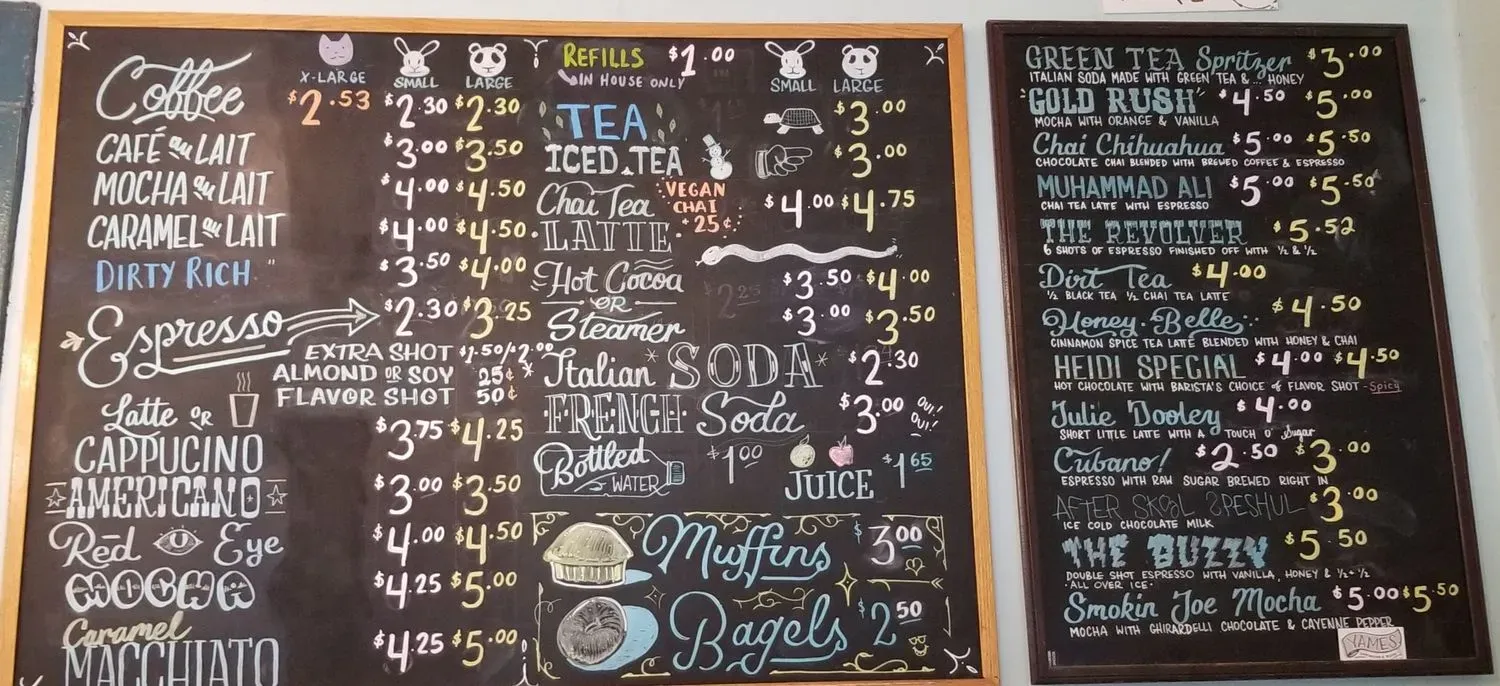 X-LARGE SMALL LARGE
Coffee $2.53 $2.30 $2.30
CAFÉ au LAIT $3.00 $3.50
MOCHA au LAIT $4.00 $4.50
CARAMEL au LAIT $4.00 $4.50
DIRTY RICH " $3.50 $4.00
Espresso $2.30 $3.25
EXTRA SHOT $1.50/$2.00
ALMOND OR SOY 25¢
FLAVOR SHOT 50¢
Latte OR
CAPPUCINO $3.75 $4.25
AMERICANO $3.00 $3.50
Red Eye $4.00 $4.50
MOCHA $4.25 $5.00
Caramel
MACCHIATO $4.25 $5.00
REFILLS $1.00
IN HOUSE ONLY
SMALL LARGE
TEA $3.00
ICED TEA $3.00
Chai Tea
LATTE $4.00 $4.75
VEGAN
CHAI
+25¢
Hot Cocoa $3.50 $4.00
OR
Steamer $3.00 $3.50
Italian SODA $2.30
FRENCH Soda $3.00 OUI! OUI!
Bottled
WATER $1.00
JUICE $1.65
Muffins $3.00
Bagels $2.50
GREEN TEA Spritzer $3.00
ITALIAN SODA MADE WITH GREEN TEA &... HONEY
"GOLD RUSH" $4.50 $5.00
MOCHA WITH ORANGE & VANILLA
Chai Chihuahua $5.00 $5.50
CHOCOLATE CHAI BLENDED WITH BREWED COFFEE & ESPRESSO
MUHAMMAD ALI $5.00 $5.50
CHAI TEA LATTE WITH ESPRESSO
THE REVOLVER $5.52
6 SHOTS OF ESPRESSO FINISHED OFF WITH ½ & ½
Dirt Tea $4.00
½ BLACK TEA ½ CHAI TEA LATTE
Honey Belle $4.50
CINNAMON SPICE TEA LATTE BLENDED WITH HONEY & CHAI
HEIDI SPECIAL $4.00 $4.50
HOT CHOCOLATE WITH BARISTA'S CHOICE of FLAVOR SHOT - Spicy
Julie Dooley $4.00
SHORT LITTLE LATTE WITH A TOUCH O' Sugar
Cubano! $2.50 $3.00
ESPRESSO WITH RAW SUGAR BREWED RIGHT IN
AFTER SKOOL SPESHUL $3.00
ICE COLD CHOCOLATE MILK
THE BUZZY $5.50
DOUBLE SHOT ESPRESSO WITH VANILLA, HONEY & ½ & ½
·ALL OVER ICE·
Smokin Joe Mocha $5.00 $5.50
MOCHA WITH GHIRARDELLI CHOCOLATE & CAYENNE PEPPER
YAMES